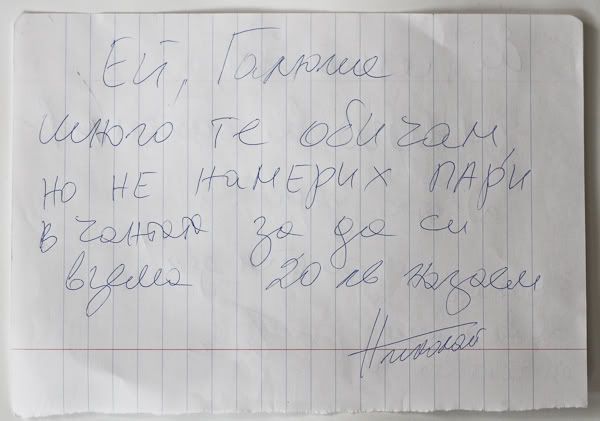 Ей, Галюше
много те обичам,
но не намерих пари
в чантата за да си
взема 20 лв назаем
Николай